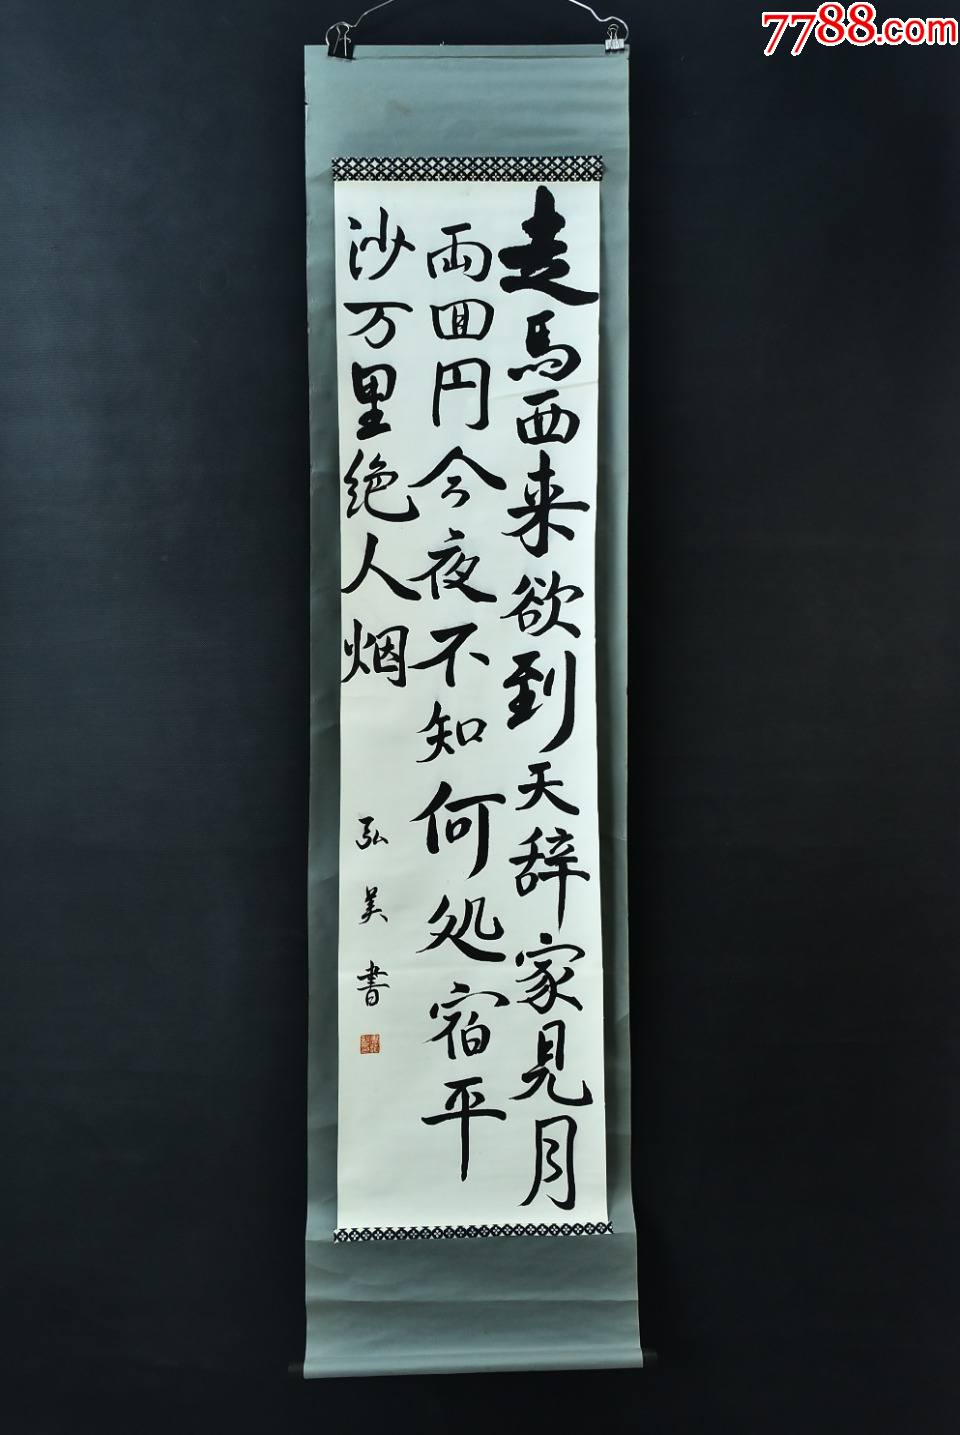 走馬西来欲到天辞家見月
両囬円今夜不知何処宿平
沙万里绝人烟
弘美書
7788.com